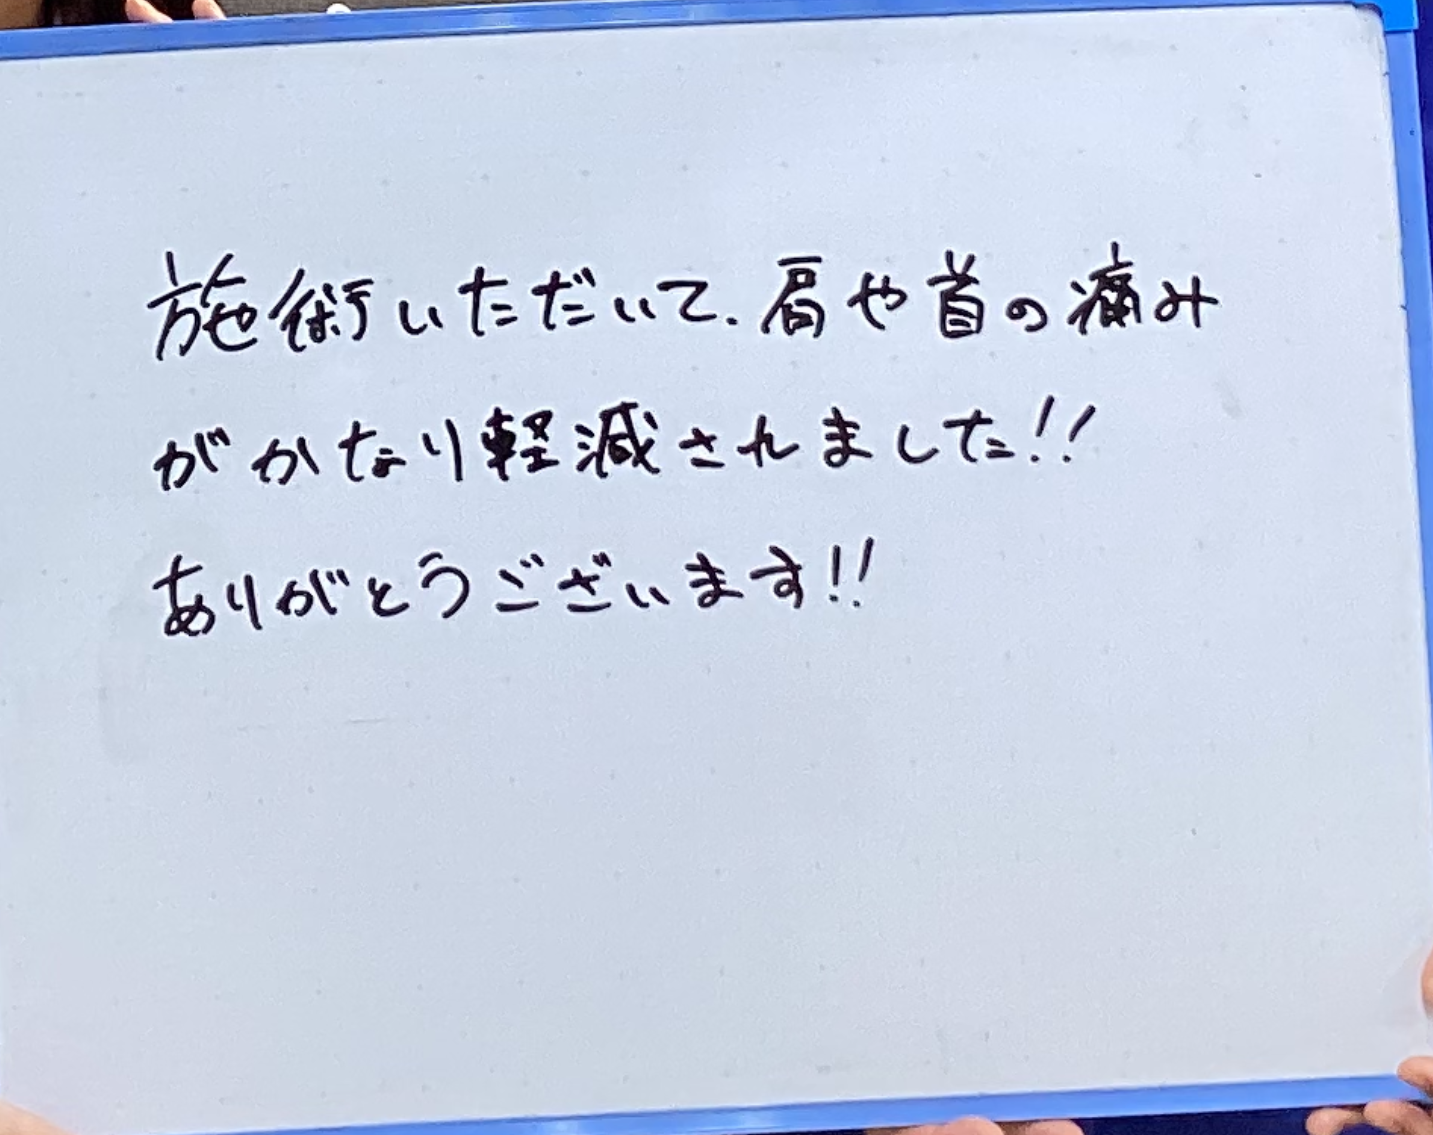 施術いただいて、肩や首の痛み
がかなり軽減されました!!
ありがとうございます!!